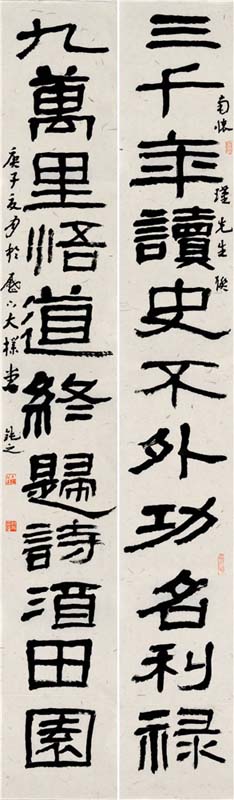 三千年讀史不外功名利禄
南懷瑾先生聯
九萬里悟道終歸詩酒田園
庚子夏月於歷下大樸書